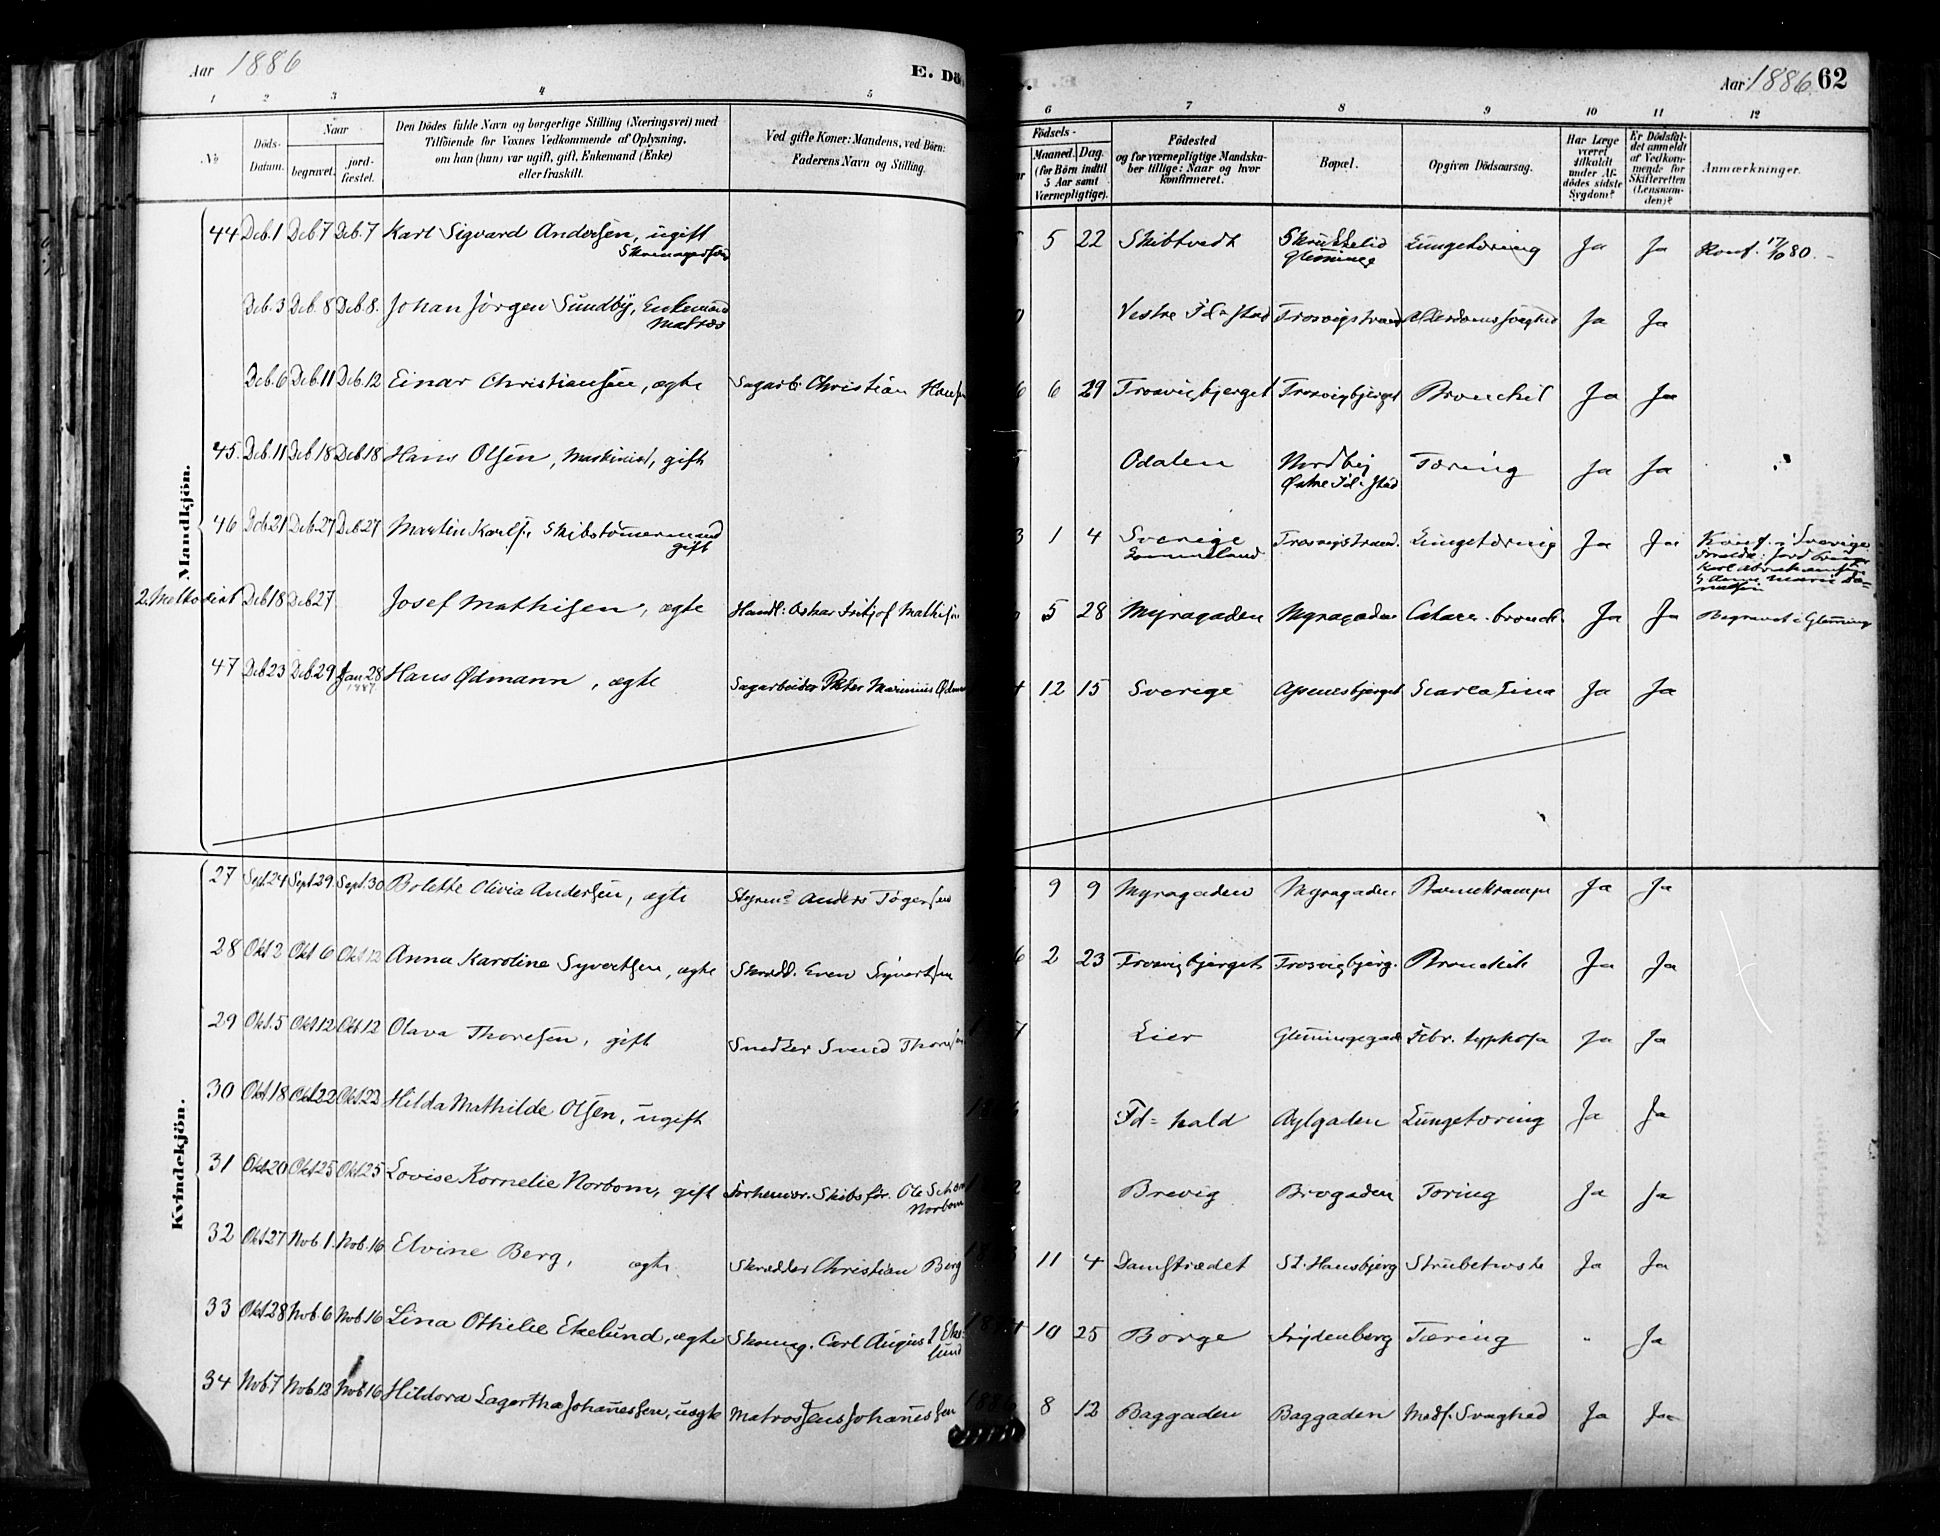 Aar 1886
E. Dö
Aar 1886. 62
1 2 3 4 5 6 7 8 9 10 11 12
No
Döds-Datum.
Naar
begravet.
jord-fæstet.
Den Dödes fulde Navn og borgerlige Stilling (Næringsvei) med
Tilföiende for Voxnes Vedkommende af Oplysning,
om han (hun) var ugift, gift, Enkemand (Enke)
eller fraskilt.
Ved gifte Koner: Mandens, ved Börn:
Faderens Navn og Stilling.
Födsels-
Maaned. Dag.
(for Börn indtil
5 Aar samt
Værnepligtige).
Födested
og for værnepligtige Mandska-
ber tillige: Naar og hvor
konfirmeret.
Bopæl.
Opgiven Dödsaarsag.
Har Læge
været
tilkaldt
under Af-
dödes sidste
Sygdom?
Er Dödsfal-
det anmeldt
af Vedkom-
mende for
Skifteretten
(Lensman-
den)?
Anmærkninger.
Mandkjön.
44 Deb. 1 Deb 7 Deb. 7 Karl Sigvard Andersen, ugift 5 22 Skibtvedt Skrukkelid Glemminge Lungetæring Ja Ja Konf. 17/10 80.
Deb. 3 Deb. 8 Deb. 8. Johan Jörgen Sundby, Enkemand Matros Vestre Fd-stad Trosvigstrand Alderdomssvaghed Ja Ja
Deb. 6 Deb. 11 Deb. 12 Einar Christiansen, ægte Sagarb. Christian Hansen 6 29 Trosvigbjerget Trosvigbjerget Bronchit Ja Ja
45. Deb. 11 Deb 18 Deb 18 Hans Olsen, Maskinist, gift Odalen Nordby Østre Fd-stad Tæring Ja Ja
46 Deb 21 Deb 27 Deb 27 Martin Karls. Skibstömermand gift 3 1 4 Sverige Trosvigstrand. Lungetæring Ja Ja Konf. i Sverige
2. Methodist Deb 18 Deb 27 Josef Mathisen, ægte Handl: Oskar Fritjof Mathisen 5 28 Myragaden Myragaden Catarr. bronch. Ja Ja Begravet i Glemminge
47 Deb 23 Deb. 29 Jan 28 1887. Hans Ødmann, ægte Sagarbeider Peter Marinius Ødmann 4 12 15 Sverige Apenesbjerget Scarlatina Ja Ja
Kvindekjön.
27 Sept. 24 Sept. 29 Sept. 30 Bolette Olivia Andersen, ægte Styrm. Anders Tögersen 9 9 Myragaden Myragaden Barnekrampe Ja Ja
28 Okt 2 Okt 6 Okt 12 Anna Karoline Syvertsen, ægte Skrædd. Even Syvertsen 6 2 23 Trosvigbjerget Trosvigbjerg. Bronchit Ja Ja
29 Okt. 5 Okt 12 Okt 12 Olava Thoresen, gift Snedker Svend Thoresen Lier Glemmingegade Febr. typhosa Ja Ja
30 Okt. 18 Okt 22 Okt. 22 Hilda Mathilde Olsen, ugift Fd-hald Aylgaden Lungetæring Ja Ja
31 Okt 20 Okt 25 Okt 25 Lovise Kornelie Norbom, gift Forhenvær. Skibsför. Ole Schou Norbom Brevig Brogaden Tæring Ja Ja
32 Okt 27 Nob. 1. Nob. 16 Elvine Berg, ægte Skrædder Christian Berg 11 4 Damstrædet St. Hansbjerg Strubehoste Ja Ja
33 Okt 28 Nob. 6 Nob 16 Lina Othelie Ekelund, ægte Skomag. Carl August Ekelund 4 10 25 Borge Frydenberg Tæring " Ja
34 Nob 7 Nob. 12 Nob 16 Hildora Lagertha Johannessen, uægte Matros Jens Johannessen 188 8 12 Baggaden Baggaden Medf. Svaghed Ja Ja